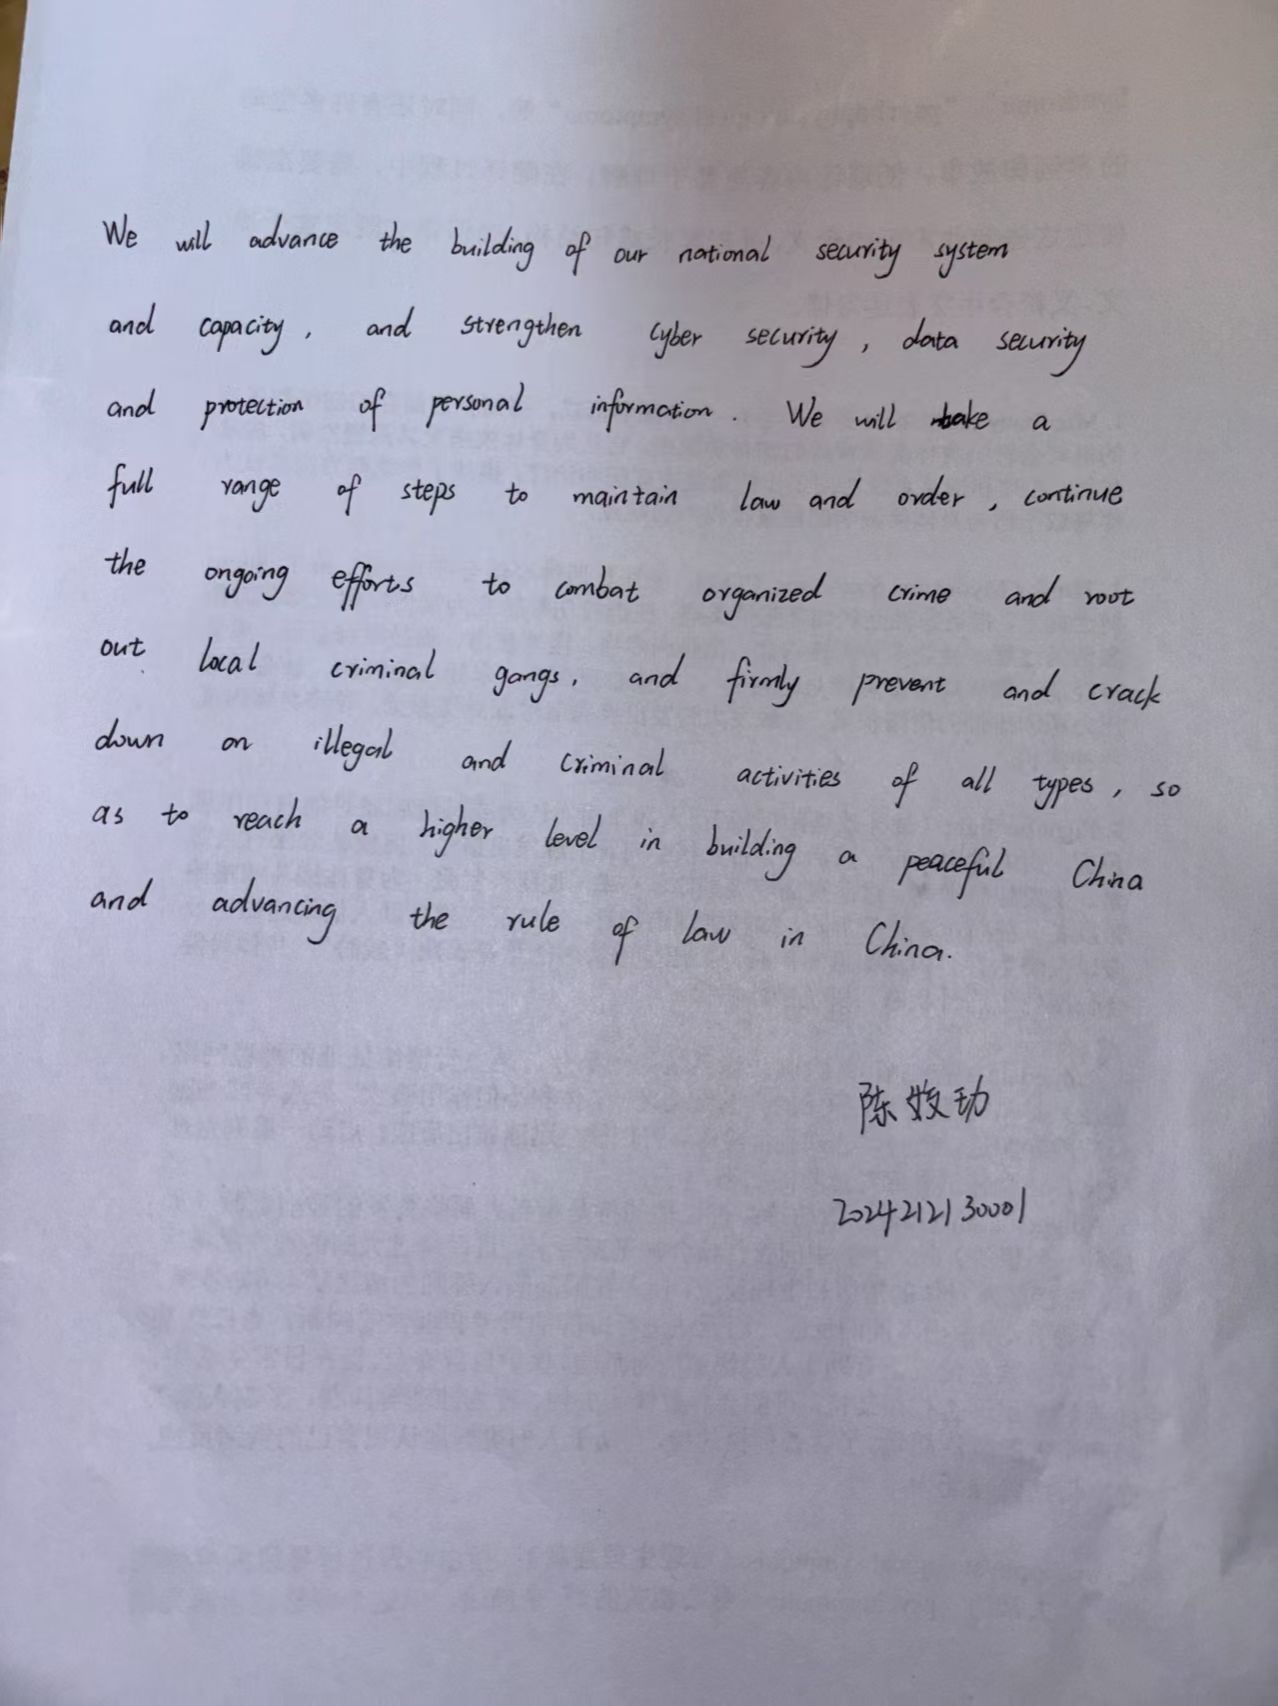 We will advance the building of our national security system
and capacity, and strengthen cyber security, data security
and protection of personal information. We will take a
full range of steps to maintain law and order, continue
the ongoing efforts to combat organized crime and root
out local criminal gangs, and firmly prevent and crack
down on illegal and criminal activities of all types, so
as to reach a higher level in building a peaceful China
and advancing the rule of law in China.
陈牧玏
2024212130001